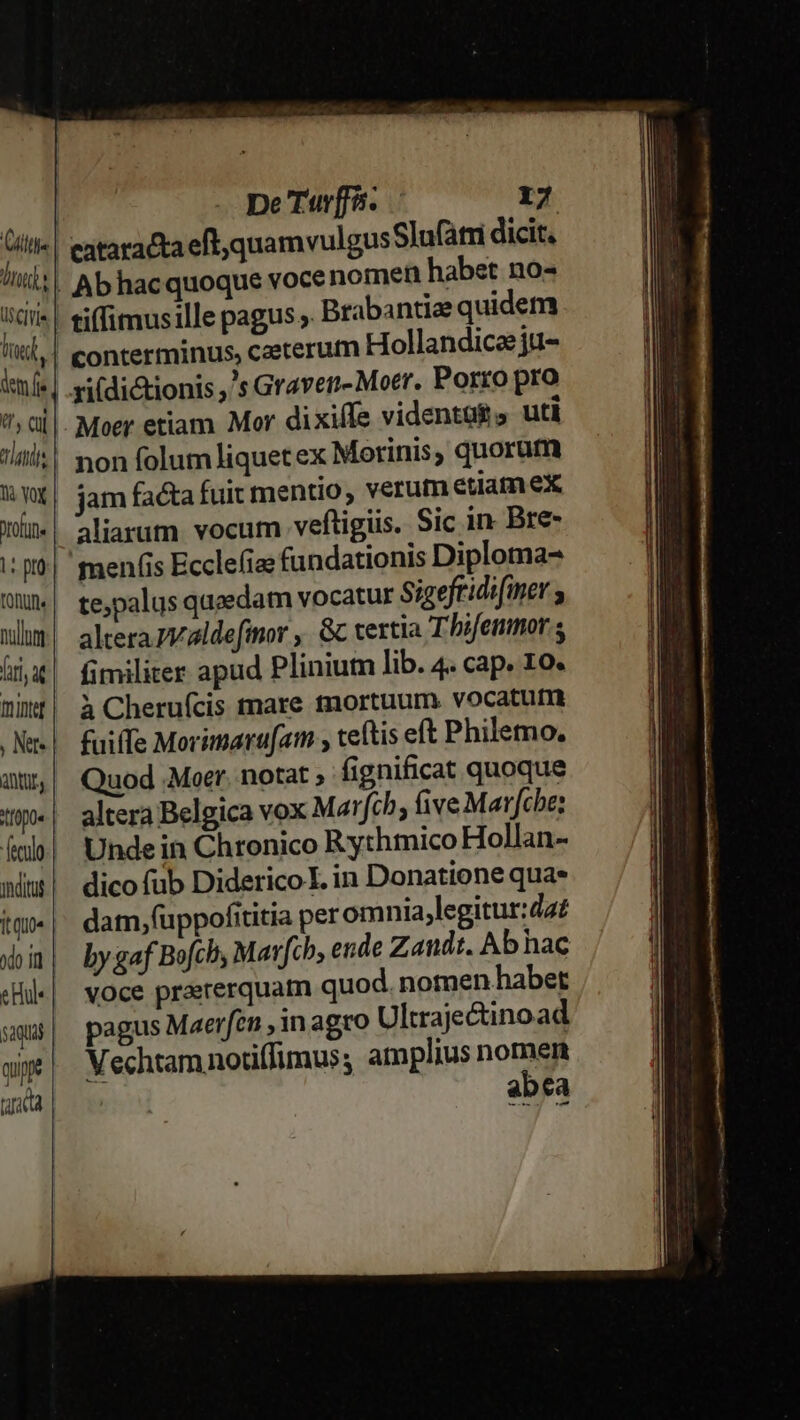 De Turffis. 17
cataracta eſt, quam vulgus Sluſam dicit.
Ab hac quoque voce nomen habet no-
tiſſimus ille pagus, Brabantiæ quidem
conterminus, cæterum Hollandicæ ju-
riſdictionis, 's Graven-Moer. Porro pro
Moer etiam Mor dixiſſe videntur, uti
non ſolum liquet ex Morinis, quorum
jam facta fuit mentio, verum etiam ex
aliarum vocum veſtigiis. Sic in Bre-
menſis Eccleſiæ fundationis Diploma-
te, palus quædam vocatur Sigefridiſmer,
altera Waldeſmor, & tertia Thiſenmor;
ſimiliter apud Plinium lib. 4. cap. 10.
à Cheruſcis mare mortuum vocatum
fuiſſe Morimaruſam, teſtis eſt Philemo.
Quod Moer notat, ſignificat quoque
altera Belgica vox Marſch, ſive Marſche:
Unde in Chronico Rythmico Hollan-
dico ſub Diderico I. in Donatione qua-
dam, ſuppoſititia per omnia, legitur: dat
by gaf Boſch, Marſch, ende Zandt. Ab hac
voce præterquam quod nomen habet
pagus Maerſen, in agro Ultrajectino ad
Vechtam notiſſimus; amplius nomen
ab ea